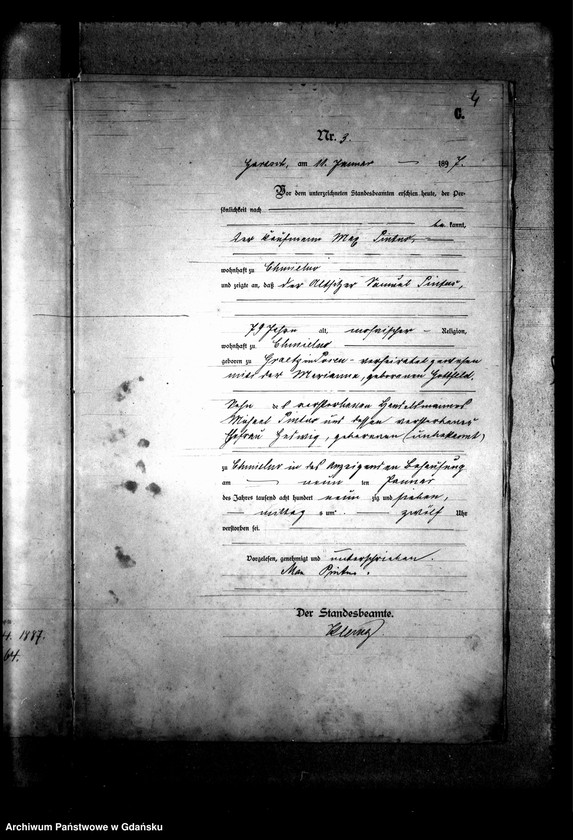 4
C.
Nr. 3.
am 11. Januar 1897.
Vor dem unterzeichneten Standesbeamten erschien heute, der Per-
sönlichkeit nach
be kannt,
der Kaufmann Max Pintus,
wohnhaft zu Chmielno
und zeigte an, daß der Altsitzer Samuel Pintus,
79 Jahre alt, mosaischer Religion,
wohnhaft zu Chmielno
geboren zu Graetz in Posen verheiratet gewesen
mit der Marianna, geborenen Gottfeld,
Sohn des verstorbenen Handelsmannes
Michael Pintus und dessen verstorbenen
Ehefrau Hedwig, geborenen (unbekannt)
zu Chmielno in des Anzeigenden Behausung
am neun ten Januar
des Jahres tausend acht hundert neun zig und sieben,
mittag s um zwölf Uhr
verstorben sei.
Vorgelesen, genehmigt und unterschrieben.
Max Pintus.
Der Standesbeamte.
4. 1887.
64.
Archiwum Państwowe w Gdańsku